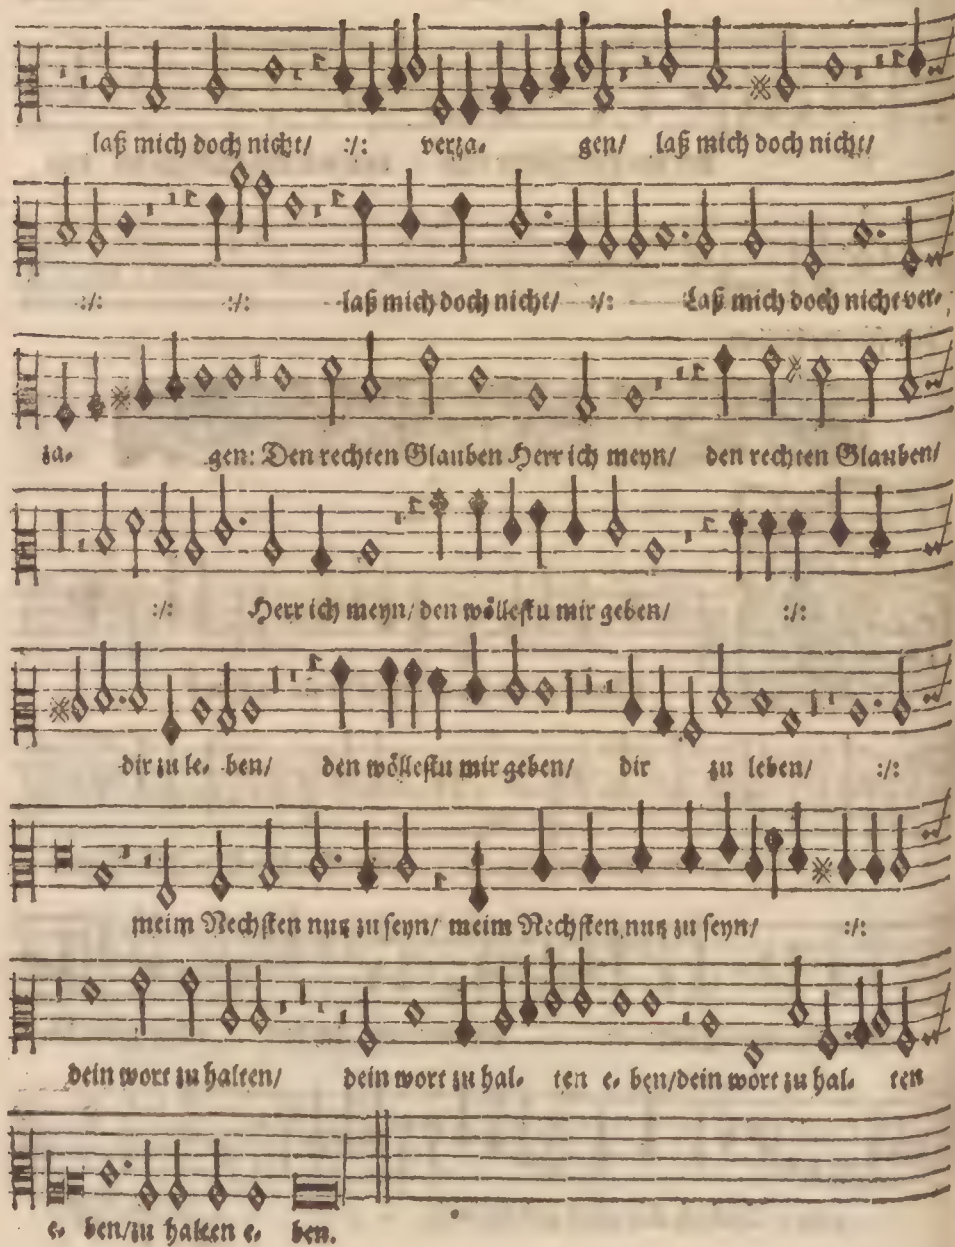 laß mich doch nicht/ :/: verza- gen/ laß mich doch nicht/
:/: :/: laß mich doch nicht/ :/: Laß mich doch nicht ver-
za- gen: Den rechten Glauben Herr ich meyn/ den rechten Glauben/
:/: Herr ich meyn/ den wöllestu mir geben/ :/:
dir zu le- ben/ den wöllestu mir geben/ dir zu leben/ :/:
meim Nechsten nutz zu seyn/ meim Nechsten nutz zu seyn/ :/:
dein wort zu halten/ dein wort zu hal- ten e- ben/dein wort zu hal- ten
e- ben/zu halten e- ben.